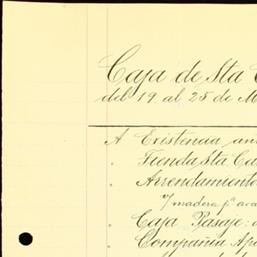 Caja de Sta C
del 19 al 25 de M
A Existencia an
" Tienda Sta Ca
" Arrendamiento
y madera pª aca
" Caja Pasaje: d
" Compañia Ap